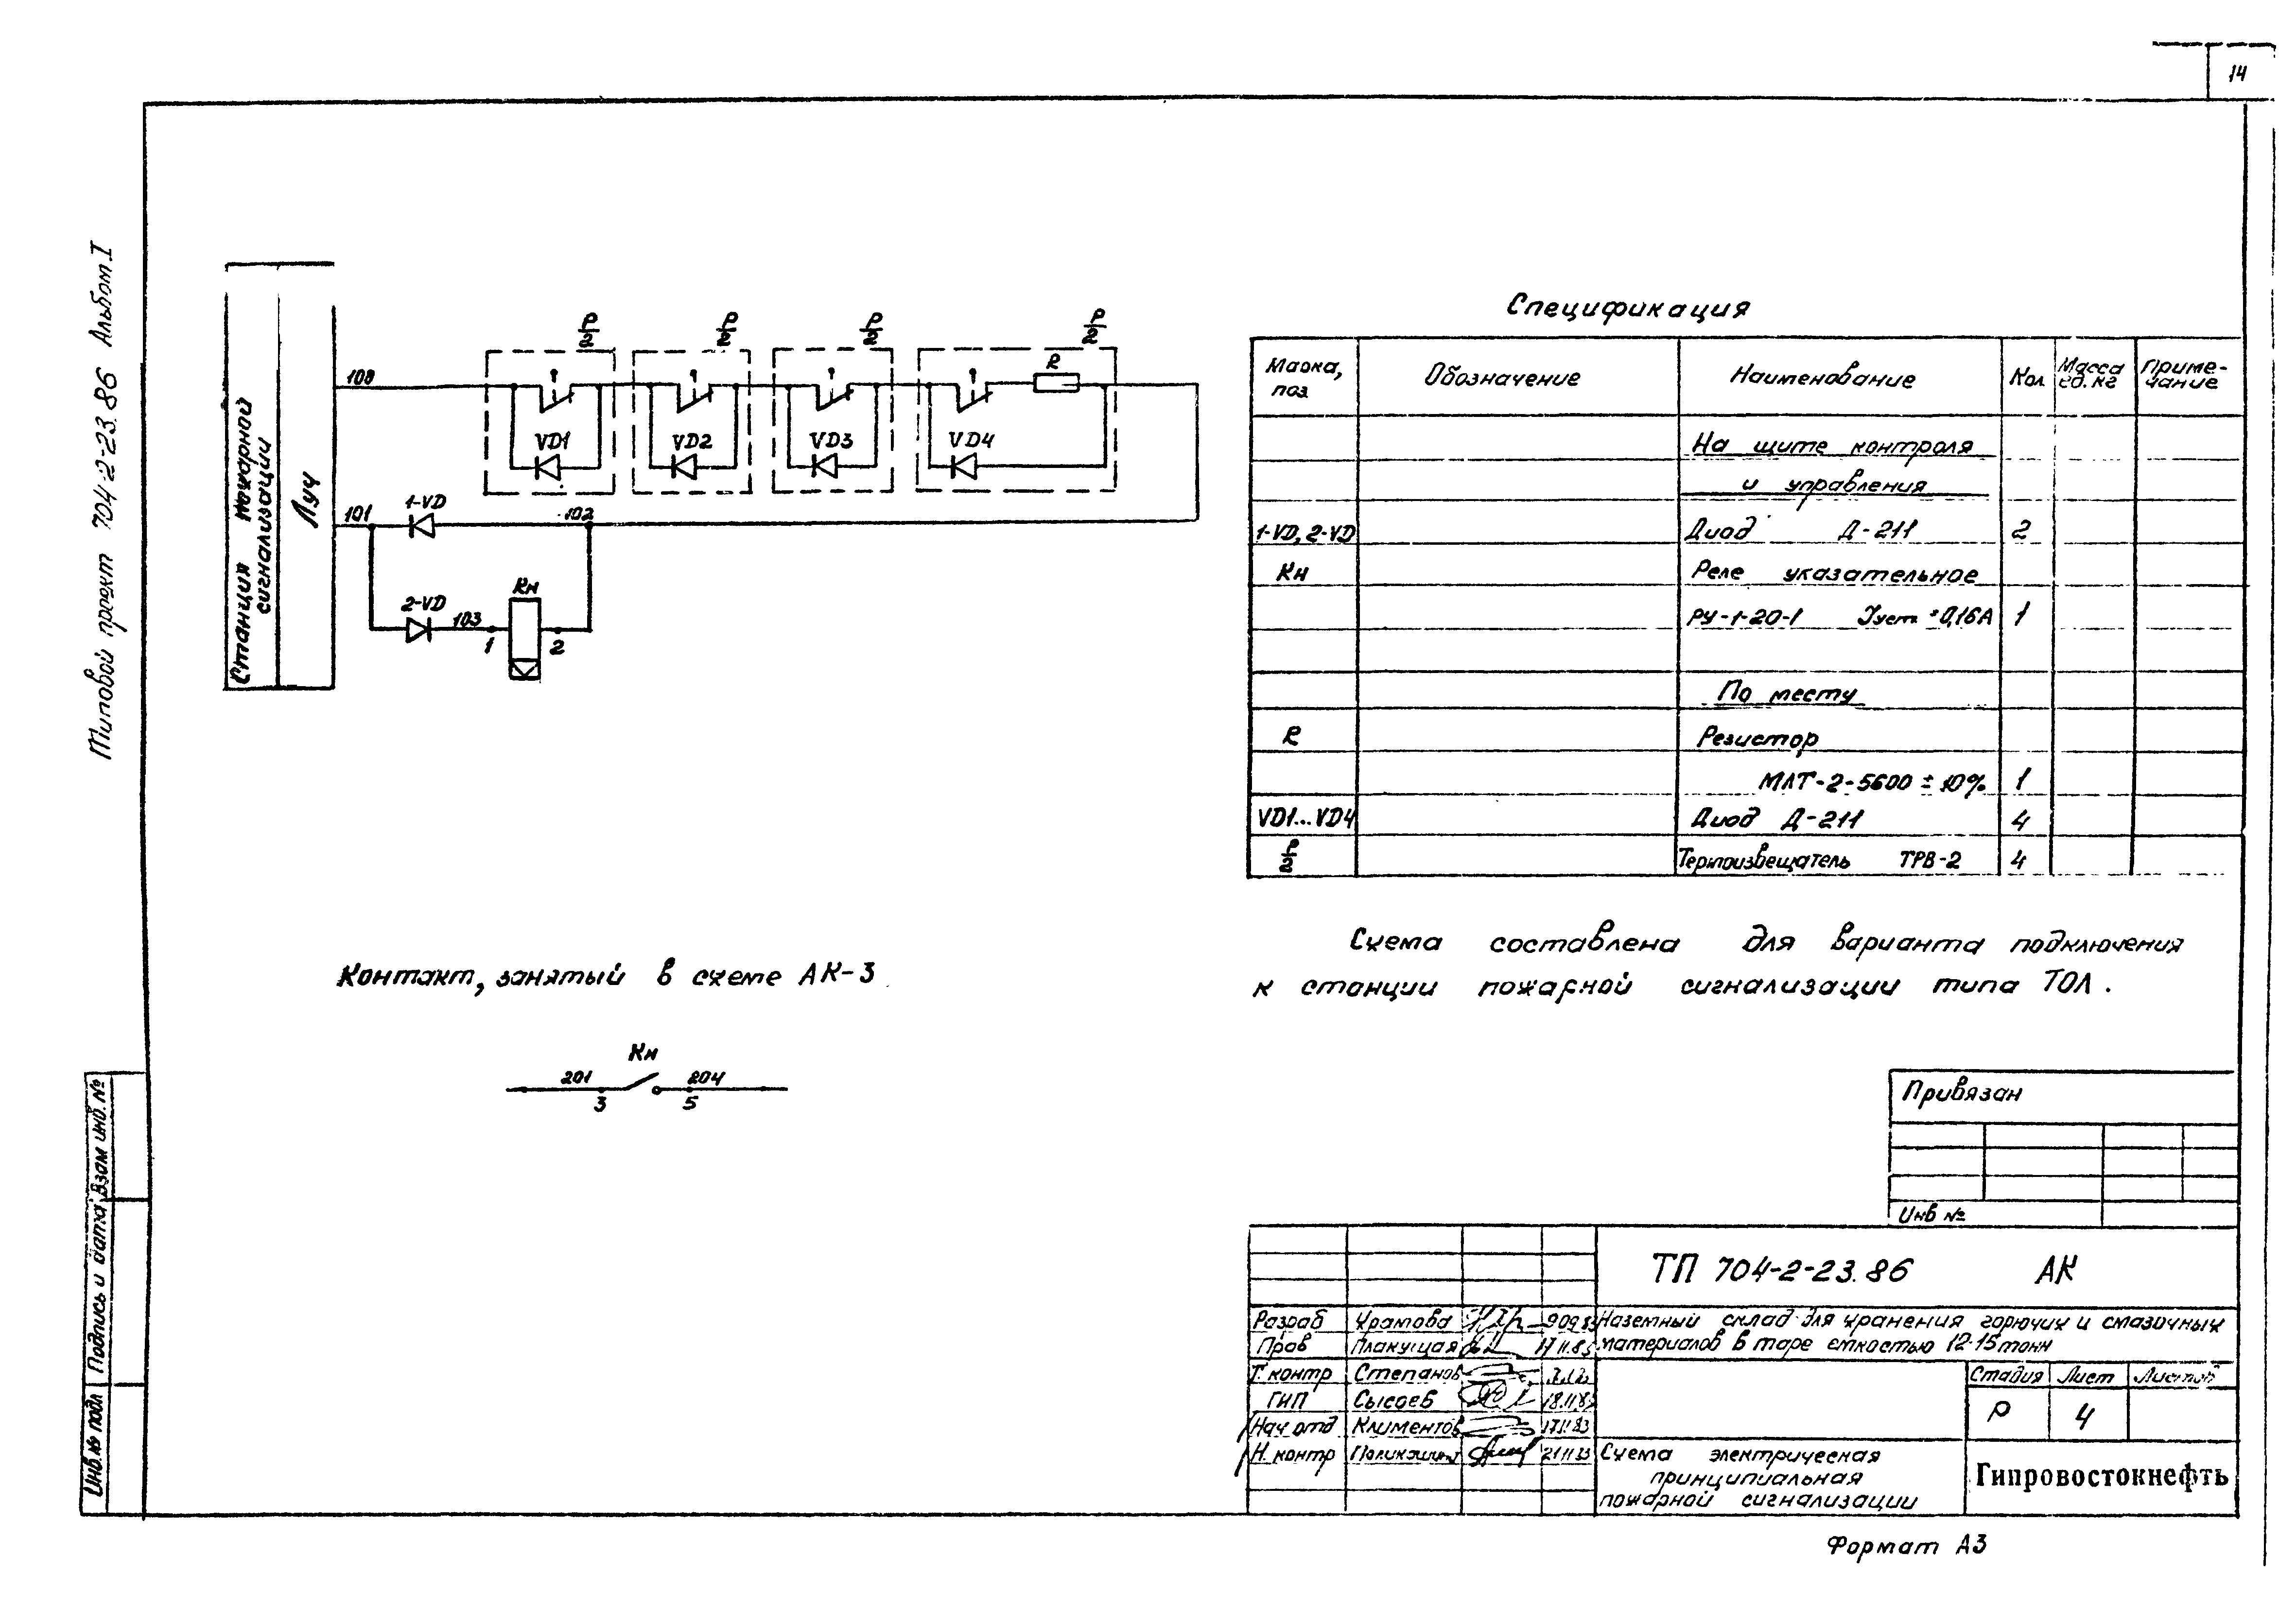 14
Типовой проект 704-2-23.86 Альбом I
Станция пожарной
сигнализации
Луч
100
101
102
103
P/2
P/2
P/2
P/2
VD1
VD2
VD3
VD4
R
1-VD
2-VD
Кн
1
2
Контакт, занятый в схеме АК-3
Кн
201
204
3
5
Спецификация
Марка, поз
Обозначение
Наименование
Кол
Масса ед. кг
Приме-чание
На щите контроля
и управления
1-VD, 2-VD Диод Д-211 2
Кн Реле указательное
РУ-1-20-1 Jуст = 0,16А 1
По месту
R Резистор
МЛТ-2-5600 ± 10% 1
VD1...VD4 Диод Д-211 4
P/2 Термоизвещатель ТРВ-2 4
Схема составлена для варианта подключения
к станции пожарной сигнализации типа ТОЛ.
Привязан
Инв №
ТП 704-2-23.86 АК
Разраб Храмова
Пров Плакущая
Т. контр Степанов
ГИП Сысоев
Нач отд Климентов
Н. контр
Наземный склад для хранения горючих и смазочных
материалов в таре емкостью 12-15 тонн
Стадия Лист Листов
Р 4
Схема электрическая
принципиальная
пожарной сигнализации
Гипровостокнефть
Формат А3
Инв. № подл
Подпись и дата
Взам инв. №